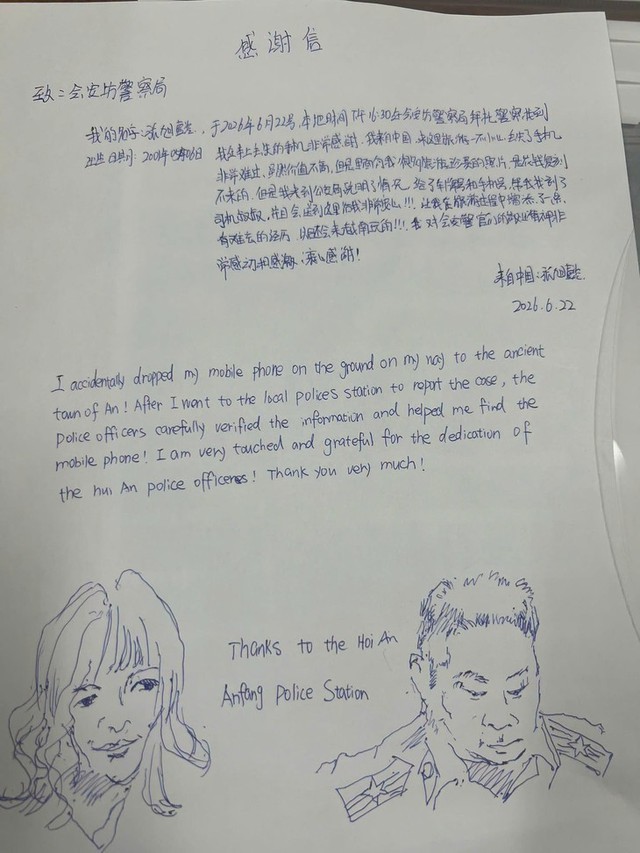 感谢信
致：会安坊警察局
我的名字：张旭，于2026年6月22号，本地时间下午16:30在会安坊警察局 警察找到
出生日期：2001年03月06日 我在车上丢失的手机非常感谢。我来自中国，来这里旅游一不小心丢失了手机
非常难过，虽然价值不高，但是里面有我们旅游的照片，是
不来的，但是我来到公安局说明了情况，给了车牌和手机号，帮我找到了
司机叔叔，并且会送到这里给我非常安心!!!，让我在旅游过程中增添了一点
有难忘的经历，以后还会来越南玩的!!!，我对会安警官们的敬业精神非
常感动和感激，衷心感谢！
来自中国：张旭
2026.6.22
I accidentally dropped my mobile phone on the ground on my nay to the ancient
town of An! After I want to the local polices station to roport the case, the
police officers carefully verified the information and helped me find the
mobile phone! I am very touched and grateful for the dedication of
the hui An police officeres! Thank you very much!
Thanks to the Hoi An
Anfang Police Station